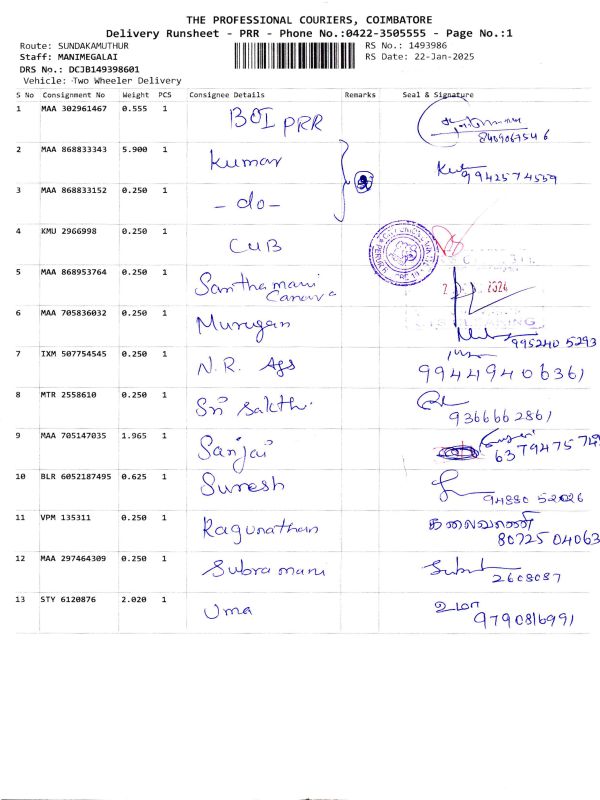 THE PROFESSIONAL COURIERS, COIMBATORE
Delivery Runsheet - PRR - Phone No.:0422-3505555 - Page No.:1
Route: SUNDAKAMUTHUR RS No.: 1493986
Staff: MANIMEGALAI RS Date: 22-Jan-2025
DRS No.: DCJB149398601
Vehicle: Two Wheeler Delivery
S No Consignment No Weight PCS Consignee Details Remarks Seal & Signature
1 MAA 302961467 0.555 1 BOI PRR
2 MAA 868833343 5.900 1 Kumar 9942574559
3 MAA 868833152 0.250 1 - do -
4 KMU 2966998 0.250 1 CUB
5 MAA 868953764 0.250 1 Santhamani
Canara
6 MAA 705836032 0.250 1 Murugan 995240 5293
7 IXM 507754545 0.250 1 N.R. Ags 9944940636)
8 MTR 2558610 0.250 1 Sri Sakthi 9366662861
9 MAA 705147035 1.965 1 Sanjai
10 BLR 6052187495 0.625 1 Suresh 94880 52026
11 VPM 135311 0.250 1 Ragunathan
80725 04063
12 MAA 297464309 0.250 1 Subramani 2608087
13 STY 6120876 2.020 1 Uma உமா
9790816991